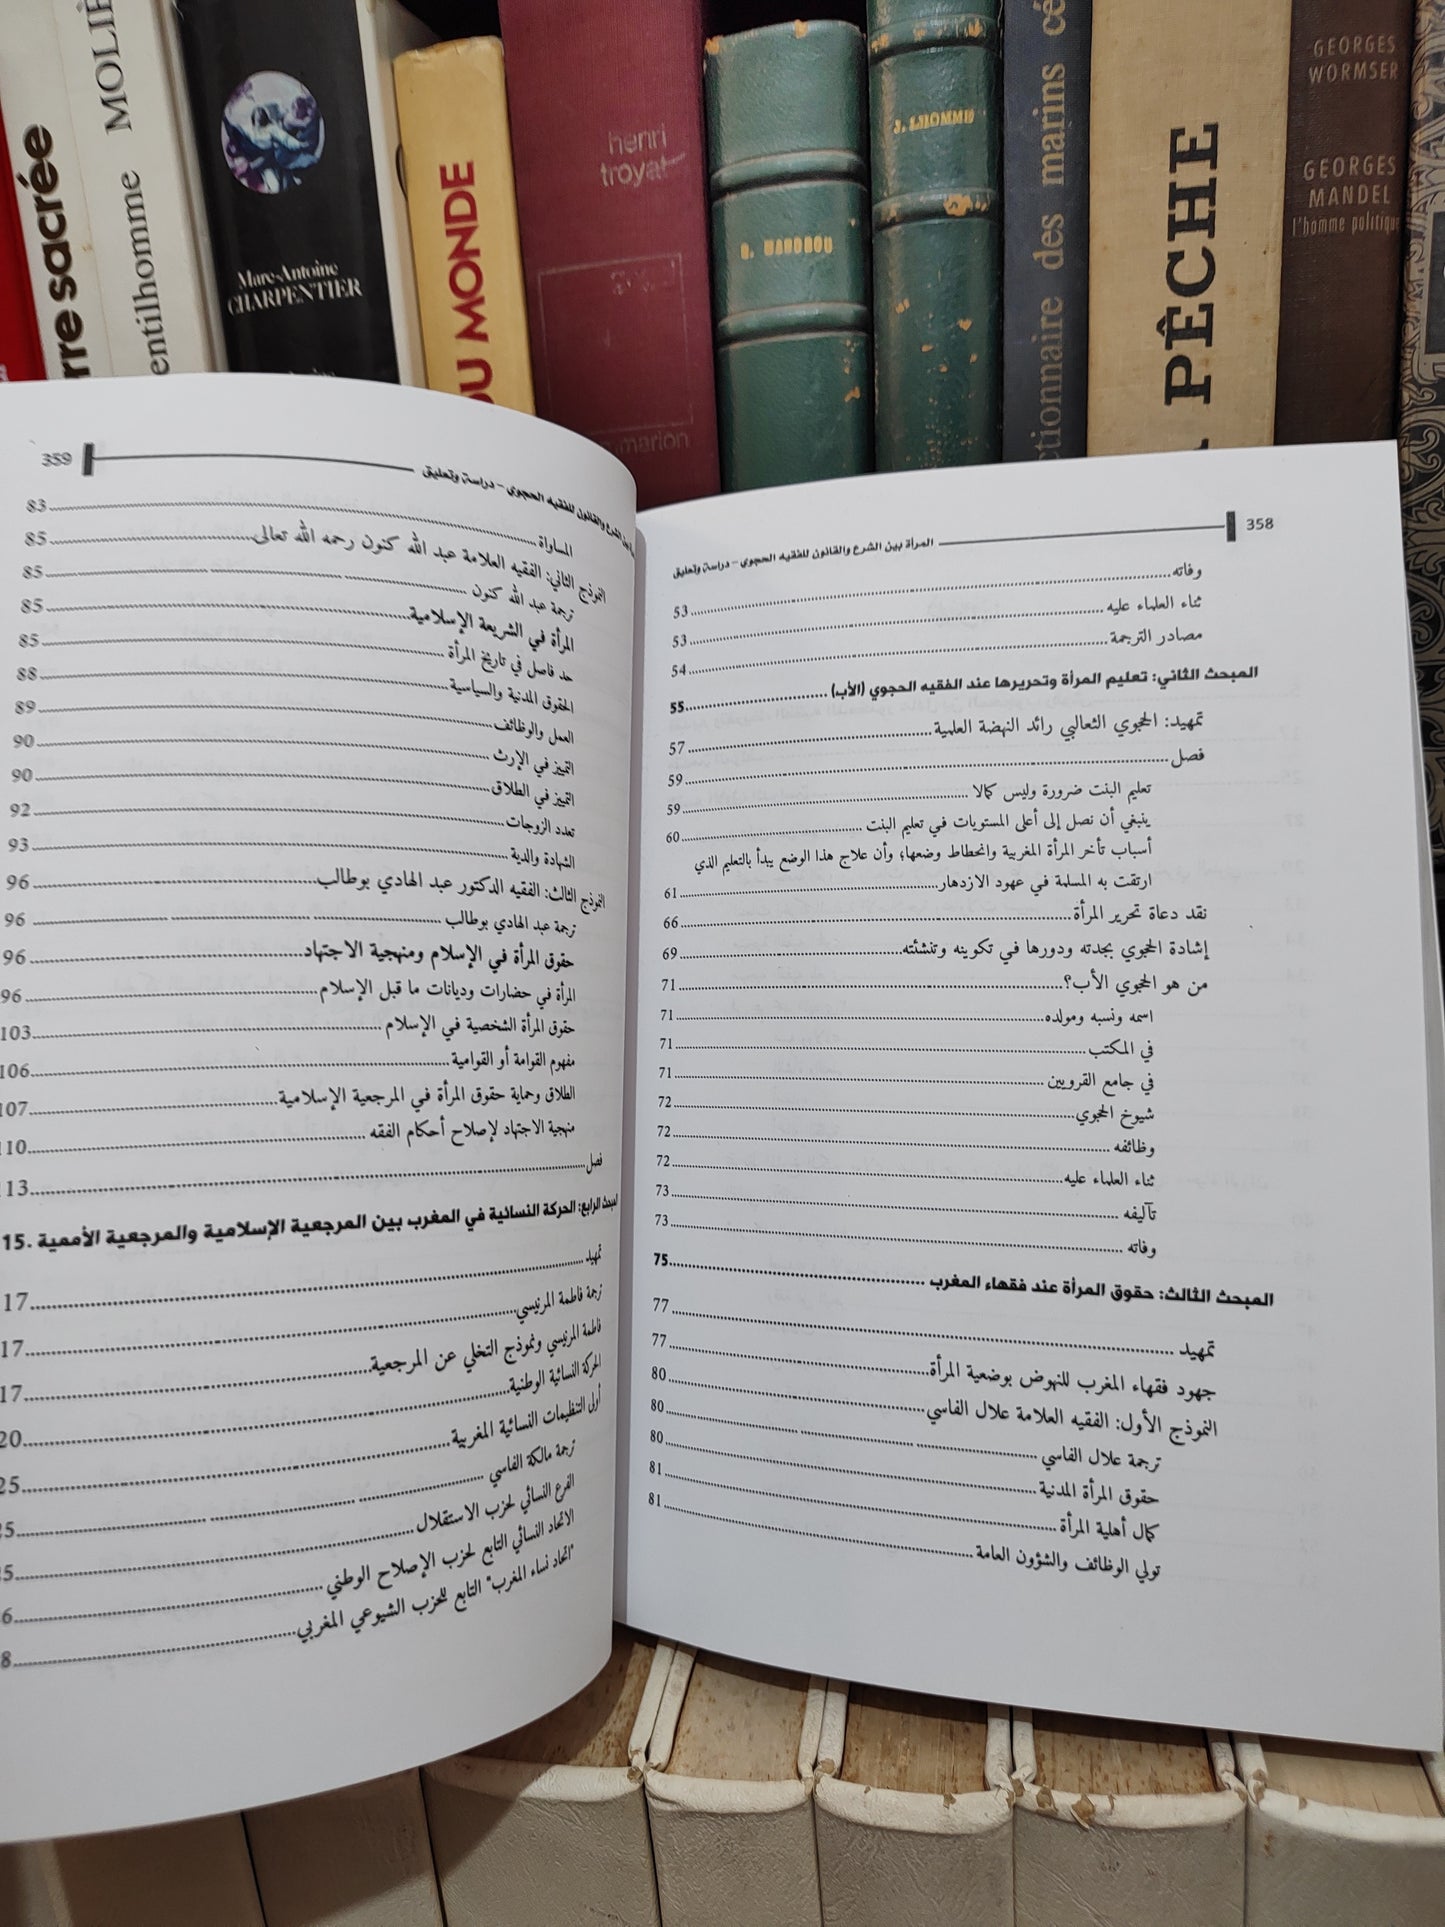 MOLIÈ
entilhomme
rre sacrée
Marc-Antoine
CHARPENTIER
DU MONDE
henri
troyat
marion
R. MANDROU
J. LHOMME
ctionnaire des marins cé
PÊCHE
GEORGES
WORMSER
GEORGES
MANDEL
l'homme politique
المرأة بين الشرع والقانون للفقيه الحجوي – دراسة وتعليق 358
وفاته 53
ثناء العلماء عليه 53
مصادر الترجمة 54
المبحث الثاني: تعليم المرأة وتحريرها عند الفقيه الحجوي (الأب) 55
تمهيد: الحجوي الثعالبي رائد النهضة العلمية 57
فصل 59
تعليم البنت ضرورة وليس كمالا 59
ينبغي أن نصل إلى أعلى المستويات في تعليم البنت 60
أسباب تأخر المرأة المغربية وانحطاط وضعها؛ وأن علاج هذا الوضع يبدأ بالتعليم الذي
ارتقت به المسلمة في عهود الازدهار 61
نقد دعاة تحرير المرأة 66
إشادة الحجوي بجدته ودورها في تكوينه وتنشئته 69
من هو الحجوي الأب؟ 71
اسمه ونسبه ومولده 71
في المكتب 71
في جامع القرويين 71
شيوخ الحجوي 72
وظائفه 72
ثناء العلماء عليه 72
تآليفه 73
وفاته 73
المبحث الثالث: حقوق المرأة عند فقهاء المغرب 75
تمهيد 77
جهود فقهاء المغرب للنهوض بوضعية المرأة 77
النموذج الأول: الفقيه العلامة علال الفاسي 80
ترجمة علال الفاسي 80
حقوق المرأة المدنية 80
كمال أهلية المرأة 81
تولي الوظائف والشؤون العامة 81
بين الشرع والقانون للفقيه الحجوي – دراسة وتعليق 359
المساواة 83
النموذج الثاني: الفقيه العلامة عبد الله كنون رحمه الله تعالى 85
ترجمة عبد الله كنون 85
المرأة في الشريعة الإسلامية 85
حد فاصل في تاريخ المرأة 85
الحقوق المدنية والسياسية 88
العمل والوظائف 89
التمييز في الإرث 90
التمييز في الطلاق 90
تعدد الزوجات 92
الشهادة والدية 93
النموذج الثالث: الفقيه الدكتور عبد الهادي بوطالب 96
ترجمة عبد الهادي بوطالب 96
حقوق المرأة في الإسلام ومنهجية الاجتهاد 96
المرأة في حضارات وديانات ما قبل الإسلام 96
حقوق المرأة الشخصية في الإسلام 103
مفهوم القوامة أو القوامية 106
الطلاق وحماية حقوق المرأة في المرجعية الإسلامية 107
منهجية الاجتهاد لإصلاح أحكام الفقه 110
فصل 13
المبحث الرابع: الحركة النسائية في المغرب بين المرجعية الإسلامية والمرجعية الأممية 15
تمهيد 17
ترجمة فاطمة المرنيسي 17
فاطمة المرنيسي ونموذج التخلي عن المرجعية 17
الحركة النسائية الوطنية 20
أولى التنظيمات النسائية المغربية 25
ترجمة مالكة الفاسي 25
الفرع النسائي لحزب الاستقلال 25
الاتحاد النسائي التابع لحزب الإصلاح الوطني 6
"اتحاد نساء المغرب" التابع للحزب الشيوعي المغربي 8